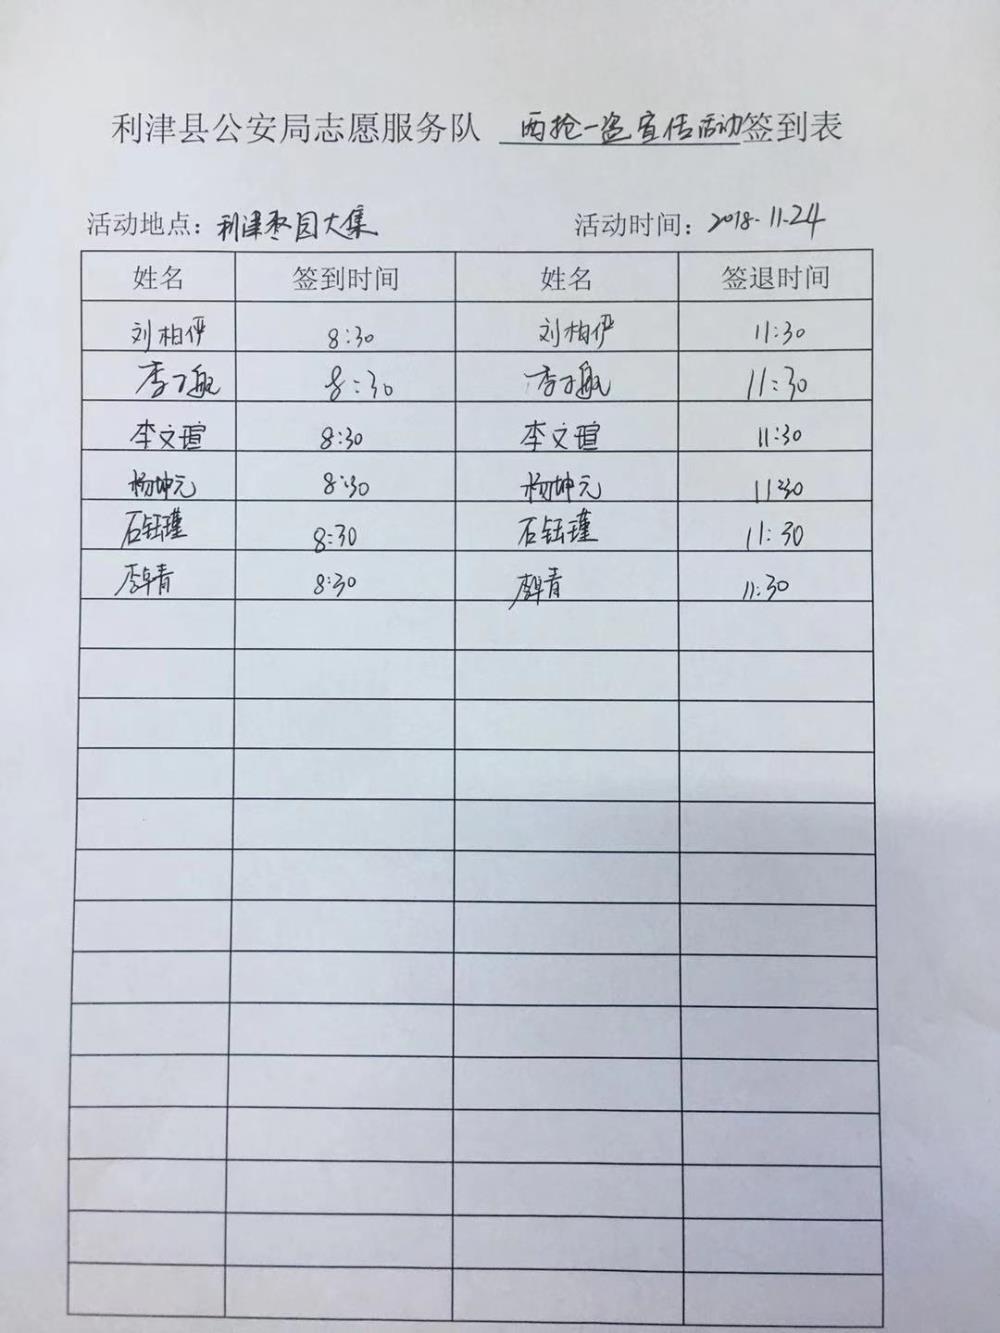 利津县公安局志愿服务队 两抢一盗宣传活动签到表
活动地点：利津枣园大集 活动时间：2018.11.24
姓名 签到时间 姓名 签退时间
刘柏伊 8:30 刘柏伊 11:30
李 8:30 李 11:30
李文瑄 8:30 李文瑄 11:30
杨坤元 8:30 杨坤元 11:30
石钰瑾 8:30 石钰瑾 11:30
李卓青 8:30 李卓青 11:30